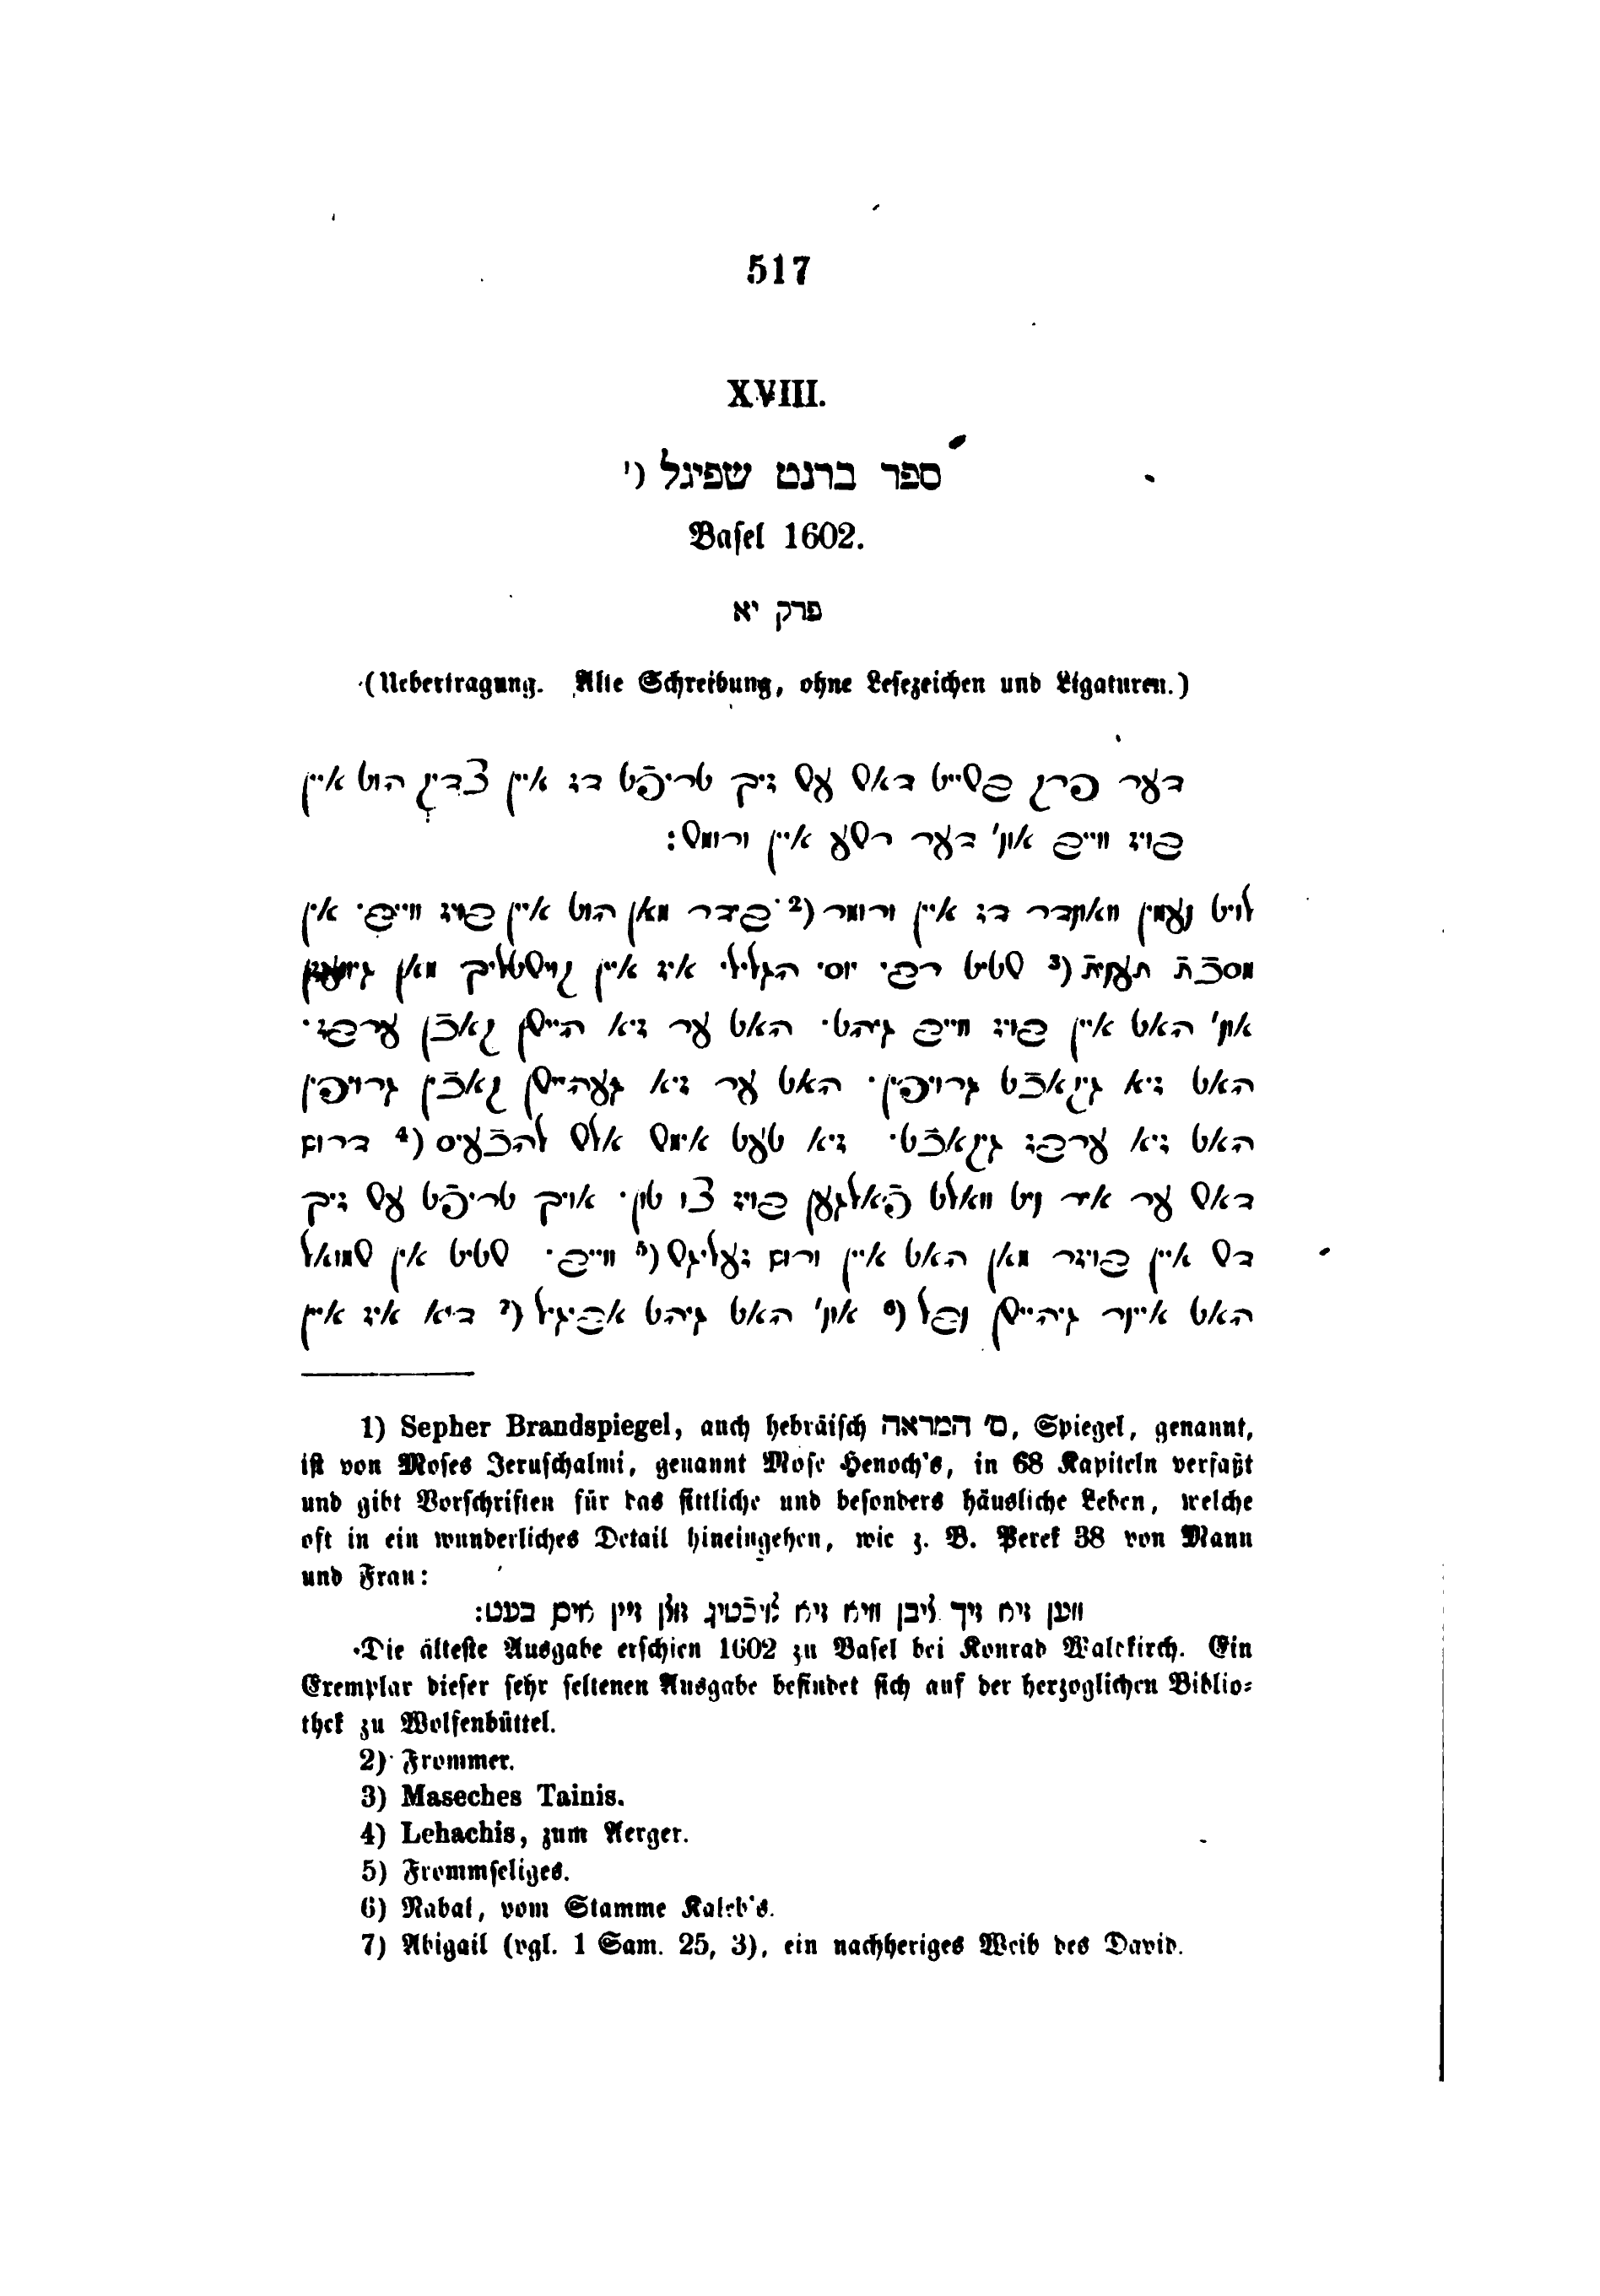 517
XVIII.
ספר ברנט שפיגל (¹
Basel 1602.
פרק יא
(Uebertragung. Alte Schreibung, ohne Lesezeichen und Ligaturen.)
דער פרק בשייט דאש עש זיך טריפֿט דז איין צדיק הוט איין
בויז ווייב אונ' דער רשע איין ורומש:
לויט נעמין וואונדר דז איין ורומר (² בידר מאן הוט איין בויז ווייב· אין
מסכֿתֿ תעניתֿ (³ שטיט רבי יוסי הגלילי איז איין גוישטליך מאן
אונ' האט איין בויז ווייב גיהט· האט ער זיא היישן קאכֿן ערבז·
האט זיא גיקאכֿט גרויפין· האט ער זיא געהיישן קאכֿין גרויפין
האט זיא ערבז גיקאכֿט· זיא טעט אימש אלש להכֿעיס (⁴ דרום
דאש ער איר ניט וואלט פֿאלגען בויז צו טון· אויך טריפֿט עש זיך
דש איין בויזר מאן האט איין ורום זעליגש (⁵ ווייב· שטיט אין שמואל
האט איינר גיהיישן נבל (⁶ אונ' האט גיהט אביגיל (⁷ דיא איז איין
1) Sepher Brandspiegel, auch hebräisch ס' המראה, Spiegel, genannt,
ist von Moses Jeruschalmi, genannt Mose Henoch's, in 68 Kapiteln verfaßt
und gibt Vorschriften für das sittliche und besonders häusliche Leben, welche
oft in ein wunderliches Detail hineingehen, wie z. B. Perek 38 von Mann
und Frau:
ווען זיא זיך ליבן וויא זיא זיין אים בעט:
Die älteste Ausgabe erschien 1602 zu Basel bei Konrad Waldkirch. Ein
Exemplar dieser sehr seltenen Ausgabe befindet sich auf der herzoglichen Biblio-
thek zu Wolfenbüttel.
2) Frommer.
3) Maseches Tainis.
4) Lehachis, zum Aerger.
5) Frommseliges.
6) Nabal, vom Stamme Kaleb's.
7) Abigail (vgl. 1 Sam. 25, 3), ein nachheriges Weib des David.